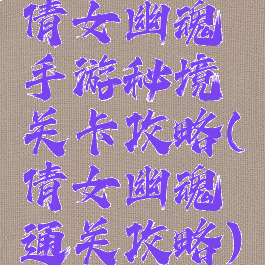 倩女幽魂
手游秘境
关卡攻略(
倩女幽魂
通关攻略)